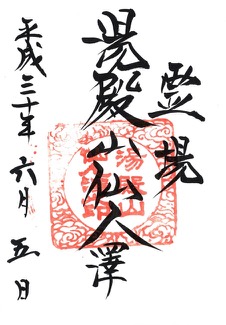 霊場
湯殿山仙人澤
平成三十年六月五日